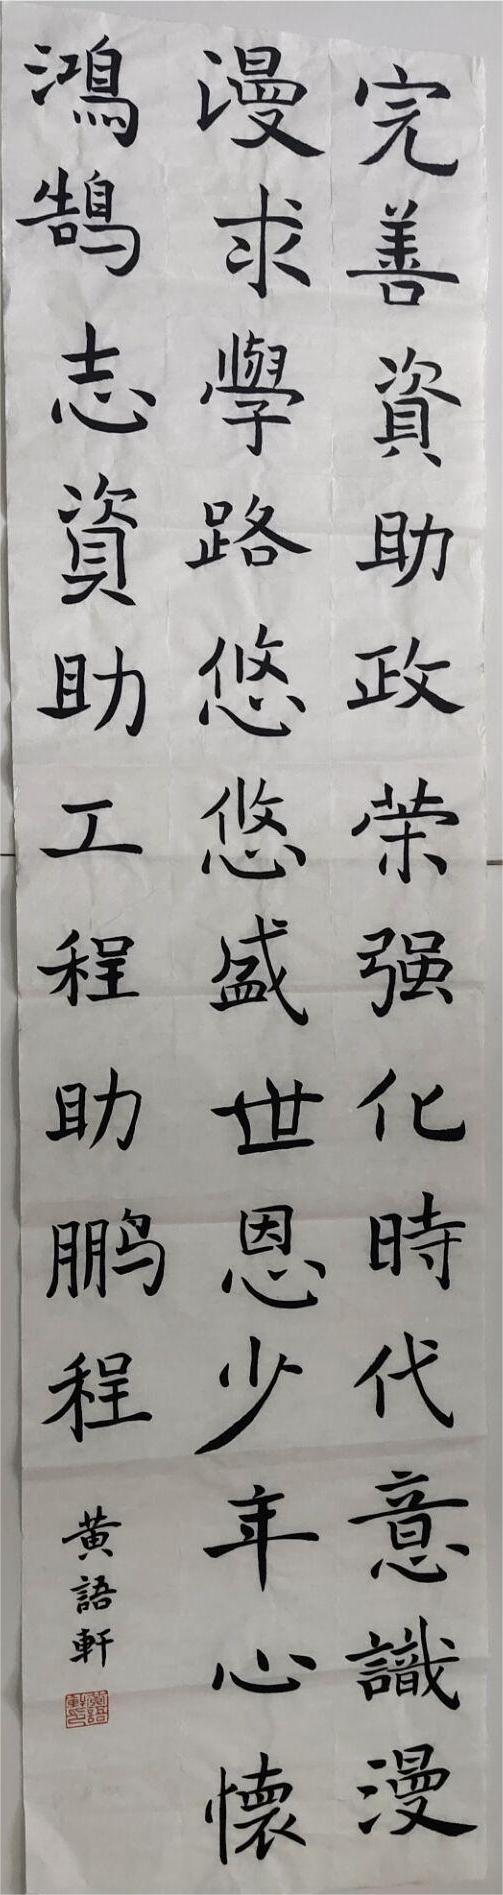 完善資助政荣强化時代意識漫
漫求學路悠悠盛世恩少年心懷
鴻鵠志資助工程助鹏程
黄語軒